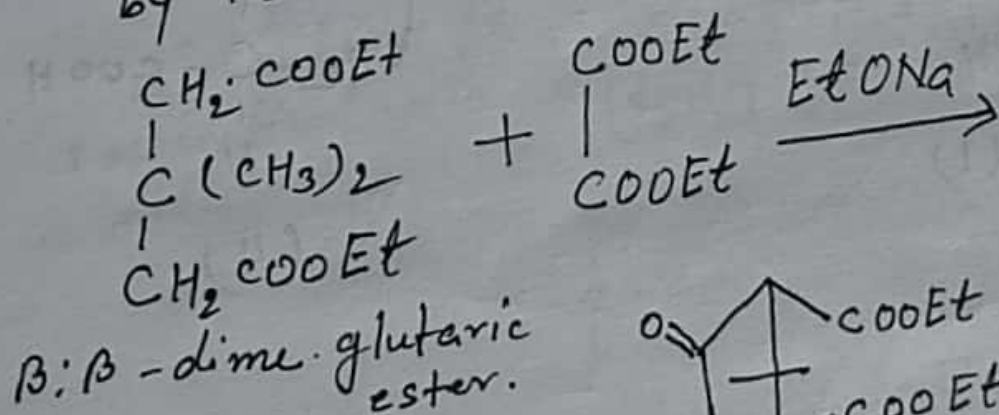 by
CH2·COOEt
C(CH3)2
CH2COOEt
+
COOEt
COOEt
EtONa
β:β-dime. glutaric
ester.
O
COOEt
COOEt